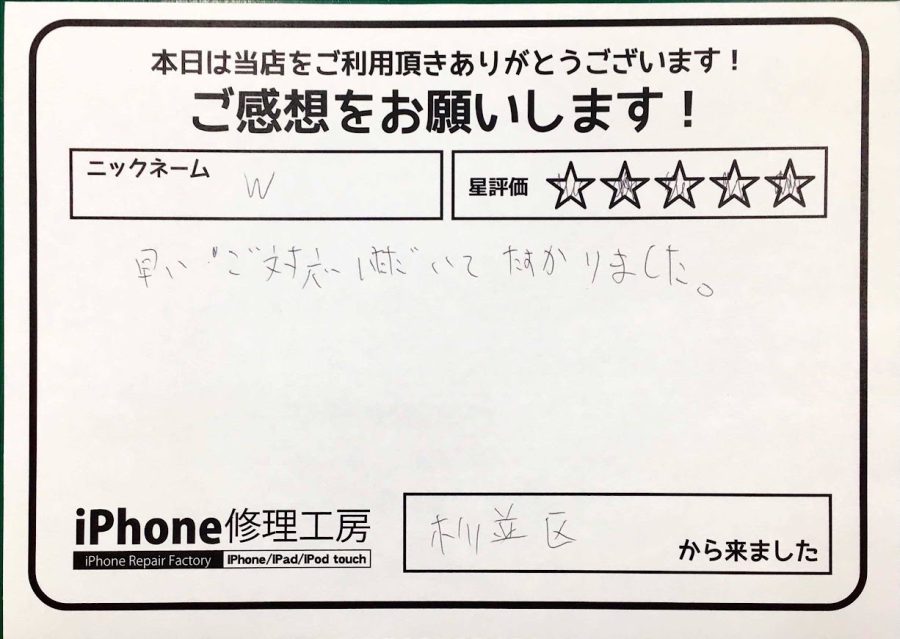 本日は当店をご利用頂きありがとうございます！
ご感想をお願いします！
ニックネーム W
星評価 ☆☆☆☆☆
早いご対応いただいてたすかりました。
iPhone修理工房
iPhone Repair Factory iPhone/iPad/iPod touch
杉並区 から来ました